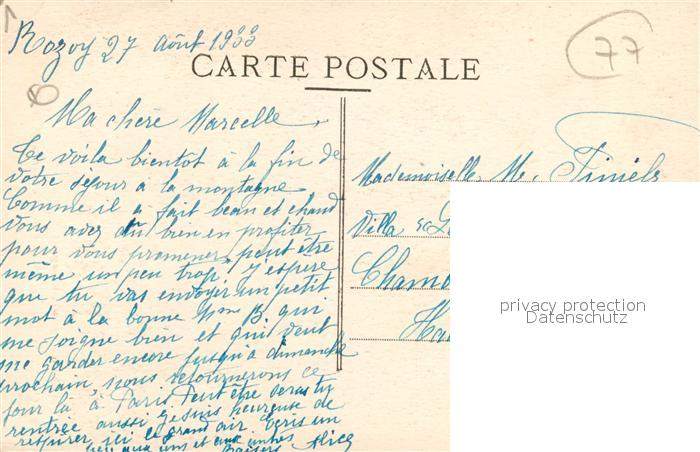 Rozoy 27 Août 1933
77
CARTE POSTALE
Ma chère Marcelle,
Te voila bientôt à la fin de
votre séjour à la montagne
Comme il a fait beau et chaud
vous avez dû bien en profiter
pour vous promener, peut être
même un peu trop. J'espère
que tu vas envoyer un petit
mot à la bonne Mme B. qui
me soigne bien et qui veut
me garder encore jusqu'à dimanche
prochain, nous retournerons ce
jour là à Paris. Peut être seras tu
rentrée aussi, je suis heureuse de
respirer ici le grand air. Ecris un
peu aux uns et aux autres
Baisers Alice
Mademoiselle M. Finiels
Villa
privacy protection
Datenschutz